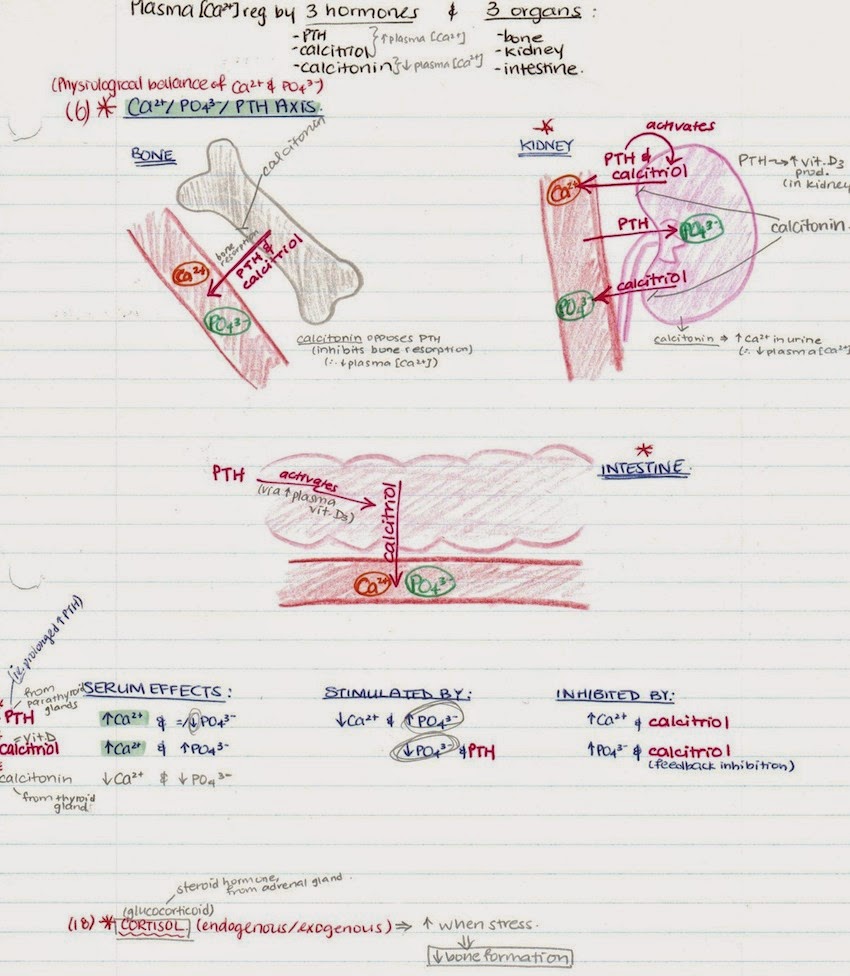 Plasma [Ca²⁺] reg by 3 hormones & 3 organs :
- PTH
- calcitriol
} ↑ plasma [Ca²⁺]
- calcitonin } ↓ plasma [Ca²⁺]
- bone
- kidney
- intestine.
(Physiological ballance of Ca²⁺ & PO₄³⁻)
(6) * Ca²⁺/ PO₄³⁻/ PTH AXIS.
BONE
calcitonin
bone resorption
PTH & calcitriol
Ca²⁺
PO₄³⁻
calcitonin opposes PTH
(inhibits bone resorption)
(∴ ↓ plasma [Ca²⁺])
*
KIDNEY
activates
PTH &
calcitriol
Ca²⁺
PTH → ↑ vit. D₃
prod.
(in kidney
PTH
PO₄³⁻
calcitonin
calcitriol
PO₄³⁻
calcitonin ⇒ ↑ Ca²⁺ in urine
(∴ ↓ plasma [Ca²⁺]
*
INTESTINE
PTH
activates
(via ↑ plasma
vit. D₃)
calcitriol
Ca²⁺
PO₄³⁻
(ie. prolonged ↑ PTH)
from
parathyroid
glands
SERUM EFFECTS :
STIMULATED BY :
INHIBITED BY :
PTH
↑ Ca²⁺ & =/↓ PO₄³⁻
↓ Ca²⁺ & ↑ PO₄³⁻
↑ Ca²⁺ & calcitriol
= Vit D
calcitriol
↑ Ca²⁺ & ↑ PO₄³⁻
↓ PO₄³⁻ & PTH
↑ PO₄³⁻ & calcitriol
(feedback inhibition)
calcitonin
↓ Ca²⁺ & ↓ PO₄³⁻
from thyroid
gland
steroid hormone,
from adrenal gland.
(glucocorticoid)
(18) * CORTISOL (endogenous/exogenous) ⇒ ↑ when stress.
⇓
↓ bone formation